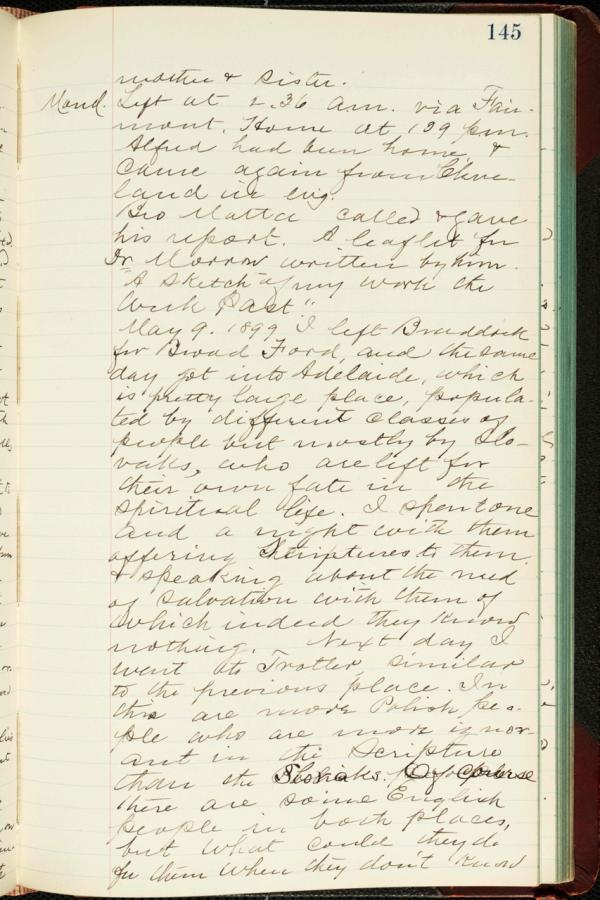 145
mother & sister.
Mond. Left at 2.36 am. via Fair-
mont. Home at 139 pm.
Alfred had been home, &
came again from Cleve-
land in evg.
Bro Matta called & gave
his report. A leaflet for
Dr. Morrow written by him.
"A Sketch of my work the
Week Past"
May 9. 1899 I left Braddock
for Broad Ford, and the same
day got into Adelaide, which
is pretty large place, popula-
ted by different classes of
people but mostly by Slo-
vaks, who are left for
their own fate in the
spiritual life. I spent one
and a night with them
offering Scriptures to them
& speaking about the need
of salvation with them of
which indeed they know
nothing. Next day I
went to Trotter similar
to the previous place. In
this are more Polish peo-
ple who are more ignor-
ant in the Scripture
than the Slovaks. Of course
there are some English
people in both places,
but what could they do
for them when they don't know